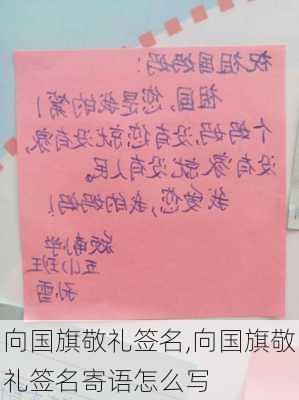 祝祖国妈妈:
祖国,您是我的第一
个妈妈,没有您就没有家,
没有家就没有人民。
我爱您,我的妈妈!
小学
五(1)班
向国旗敬礼签名,向国旗敬
礼签名寄语怎么写